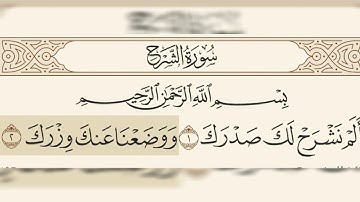 سُورَةُ الشَّرْحِ
بِسْمِ اللَّهِ الرَّحْمَٰنِ الرَّحِيمِ
أَلَمْ نَشْرَحْ لَكَ صَدْرَكَ ١ وَوَضَعْنَا عَنكَ وِزْرَكَ ٢